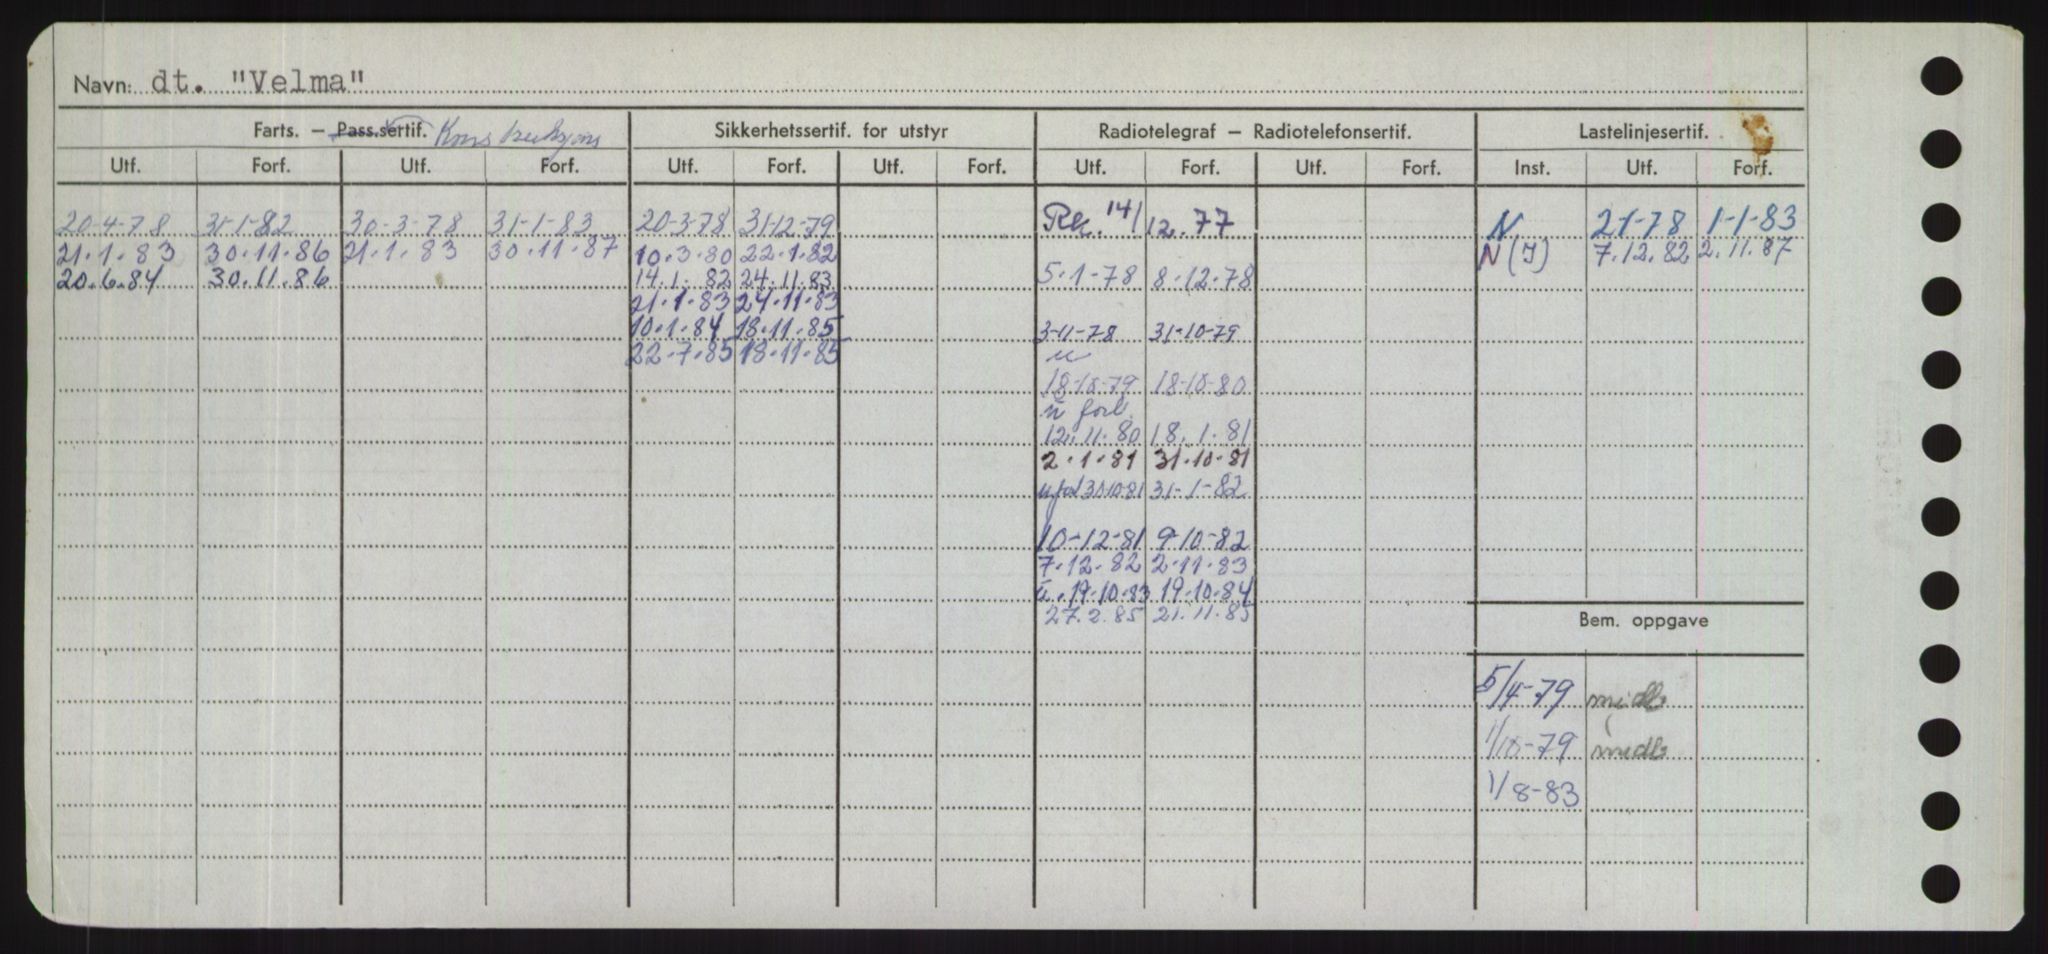 Navn: dt. "Velma"
Farts. – Pass.sertif. Sikkerhetssertif. for utstyr Radiotelegraf – Radiotelefonsertif. Lastelinjesertif.
Utf. Forf. Utf. Forf. Utf. Forf. Utf. Forf. Utf. Forf. Utf. Forf. Inst. Utf. Forf.
20-4-78 31-1-82 30-3-78 31-1-83 20-3-78 31-12-79 14/12.77 N 2-1-78 1-1-83
21.1.83 30.11.86 21.1.83 30.11.87 10.3.80 22.1.82 N(I) 7.12.82 2.11.87
20.6.84 30.11.86 14.1.82 24.11.83 5.1-78 8.12.78
21.1.83 24.11.83
10.1.84 18.11.85 3-11-78 31-10-79
22.7.85 18.11.85
18-10-79 18-10-80
12.11.80 18.1.81
2.1.81 31.10.81
31-1-82
10-12-81 9-10-82
7.12.82 2.11.83
19.10.83 19.10.84
27.2.85 21.11.85
Bem. oppgave
5/4-79 midl.
1/10-79 midl.
1/8-83